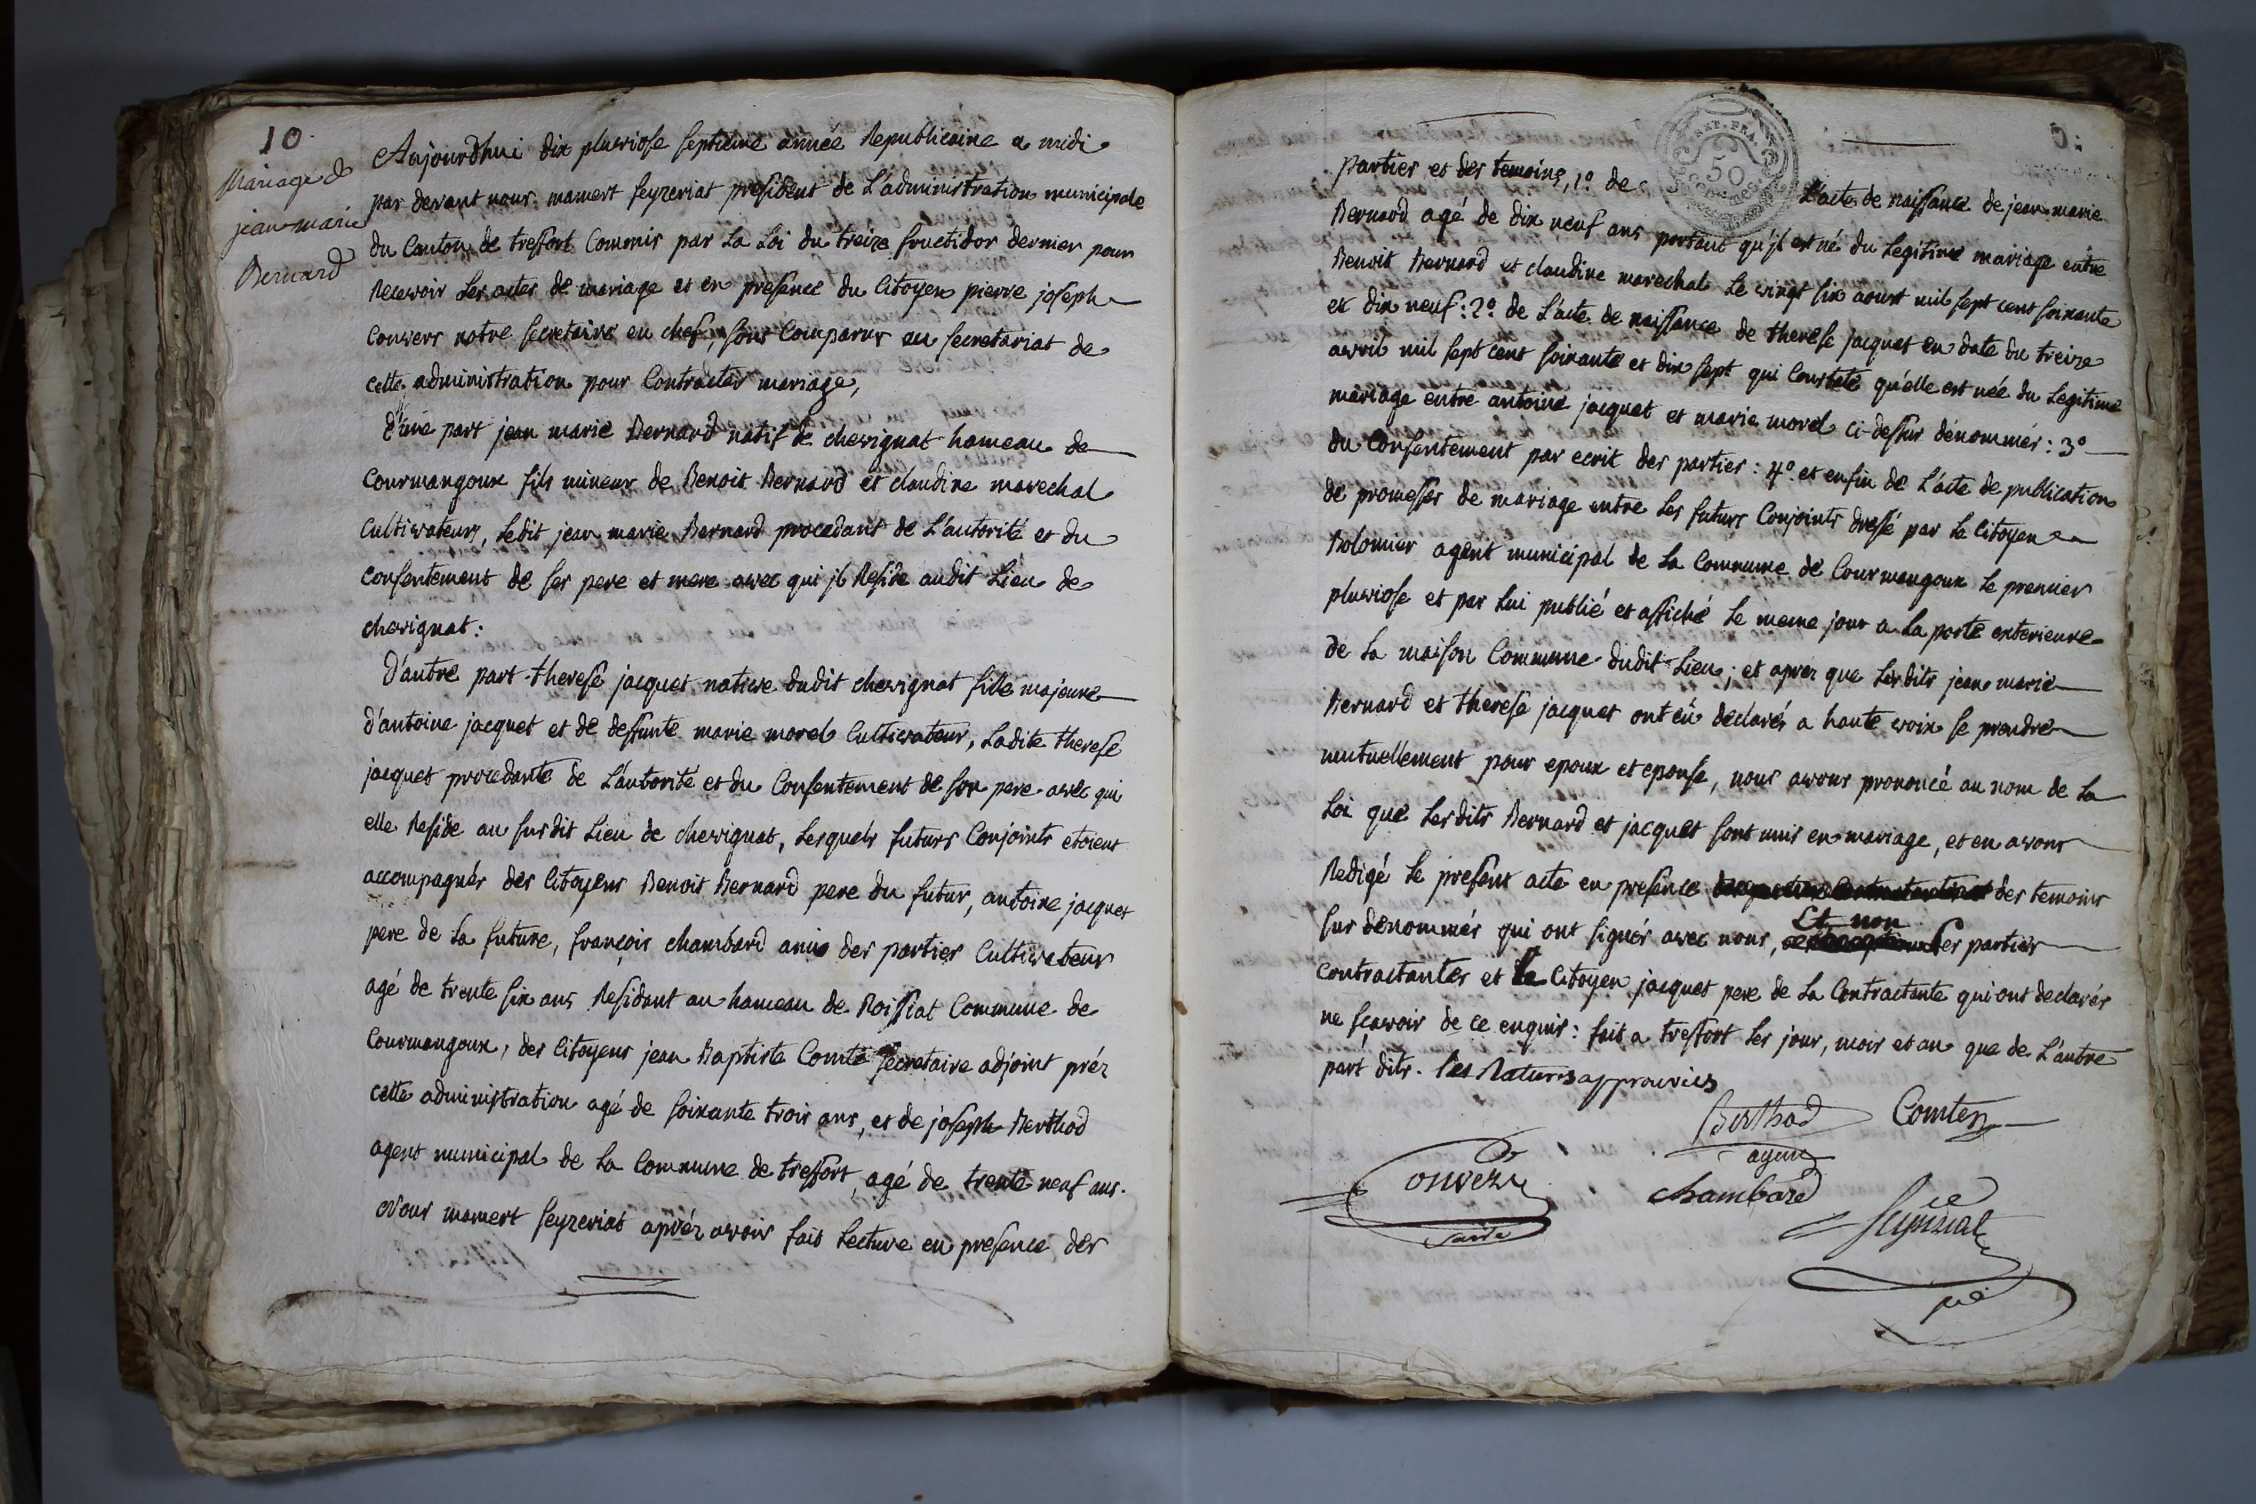 10
Mariage de
jean marie
Bernard
Aujourdhui dix pluviose septieme année Republicaine a midi
par devant nous mamert seyzeriat president de L'administration municipale
du Canton de treffort Commis par La Loi du treize fructidor dernier pour
Recevoir Les actes de mariage et en presence du Citoyen pierre joseph
convers notre secretaire en chef, sont Comparus au secretariat de
cette administration pour Contracter mariage,
d'une part jean marie Bernard natif de chevignat hameau de
Courmangoux fils mineur de Benoit Bernard et claudine marechal
Cultivateurs, Ledit jean marie Bernard procedant de L'autorité et du
consentement de ses pere et mere avec qui jl Reside audit Lieu de
chevignat:
D'autre part therese jacquet native dudit chevignat fille majeure
d'antoine jacquet et de deffunte marie morel Cultivateur, Ladite therese
jacquet procedante de L'autorité et du Consentement de son pere avec qui
elle Reside au susdit Lieu de chevignat, Lesquels futurs Conjoints etoient
accompagnés des Citoyens Benoit Bernard pere du futur, antoine jacquet
pere de La future, françois chambard amis des parties Cultivateur
agé de trente six ans Residant au hameau de Roissiat Commune de
Courmangoux, des Citoyens jean Baptiste Comte secretaire adjoint préz
cette administration agé de soixante trois ans, et de joseph Berthod
agent municipal de La Commune de treffort, agé de trente neuf ans.
Nous mamert seyzeriat apréz avoir fait Lecture en presence des
RET. FRA.
50
parties et des temoins, 1o. de L'acte de naissance de jean marie
Bernard agé de dix neuf ans portant qu'jl est né du Legitime mariage entre
Benoit Bernard et claudine marechal Le vingt six aoust mil sept cent soixante
et dix neuf: 2o. de L'acte de naissance de therese jacquet en date du treize
avril mil sept cent soixante et dix sept qui Constate qu'elle est née du Legitime
mariage entre antoine jacquet et marie morel ci-dessus dénommés: 3o
du Consentement par ecrit des parties: 4o. et enfin de L'acte de publication
de promesses de mariage entre Les futurs Conjoints dressé par Le Citoyen
Bolomier agent municipal de La Commune de Courmangoux Le premier
pluviose et par Lui publié et affiché Le meme jour a La porte exterieure
de La maison Commune dudit Lieu; et aprez que Lesdits jean marie
Bernard et therese jacquet ont eû declarés a haute voix se prendre
mutuellement pour epoux et epouse, nous avons prononcé au nom de La
Loi que Lesdits Bernard et jacquet sont unis en mariage, et en avons
Redigé Le present acte en presence des temoins
sur dénommés qui ont signés avec nous, Et non Les parties
contractantes et le Citoyen jacquet pere de La Contractante qui ont declarés
ne sçavoir de ce enquis: fait a treffort Les jour, mois et an que de L'autre
part dits. Les Ratures approuvées
Berthod Comte
agent
Convers
chambard
Seyzeriat